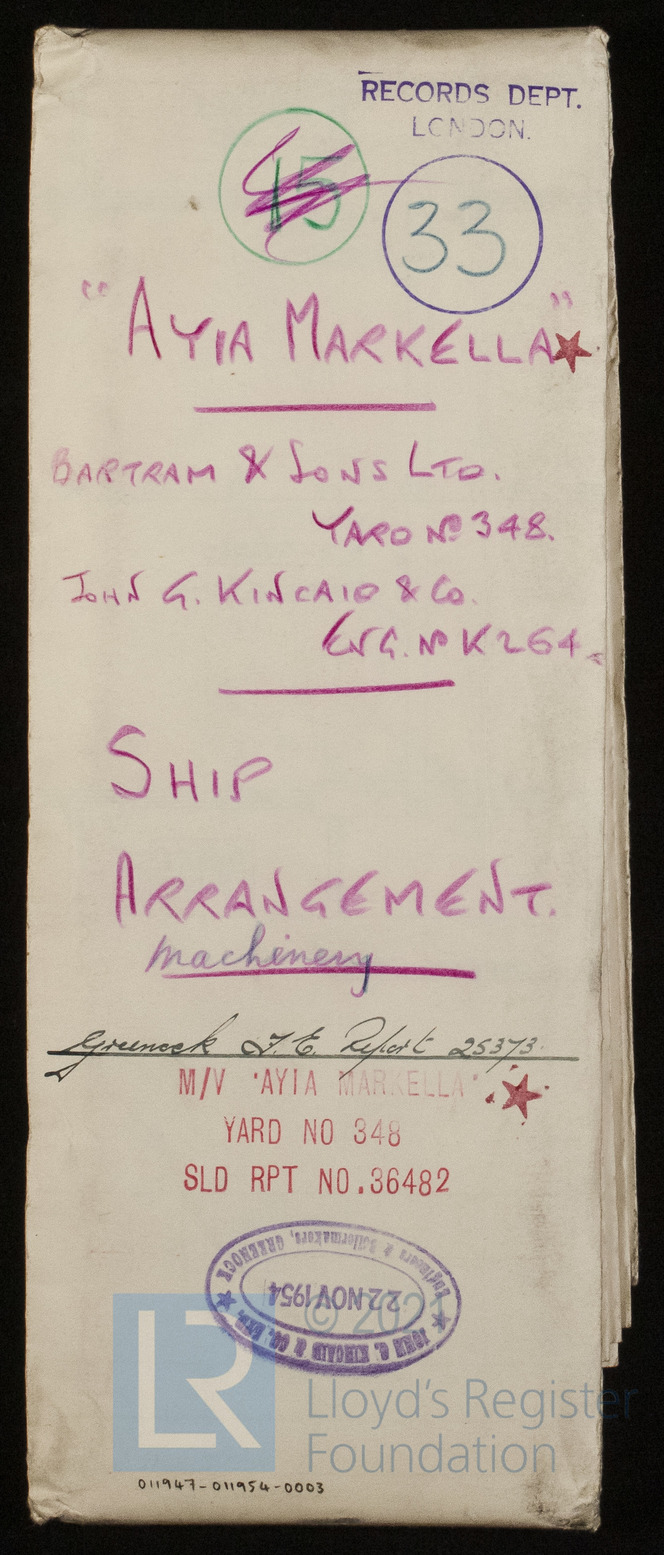 RECORDS DEPT.
LONDON.
15
33
"AYIA MARKELLA"
BARTRAM & SONS LTD.
YARD Nº 348.
JOHN G. KINCAID & CO.
ENG. Nº K264.
SHIP
ARRANGEMENT.
Machinery
Greenock F.E. Report 25373.
M/V 'AYIA MARKELLA'.
YARD NO 348
SLD RPT NO.36482
JOHN G. KINCAID & CO., LTD.
Engineers & Boilermakers, GREENOCK
22 NOV 1954
© 2021
LR
Lloyd's Register
Foundation
011947-011954-0003